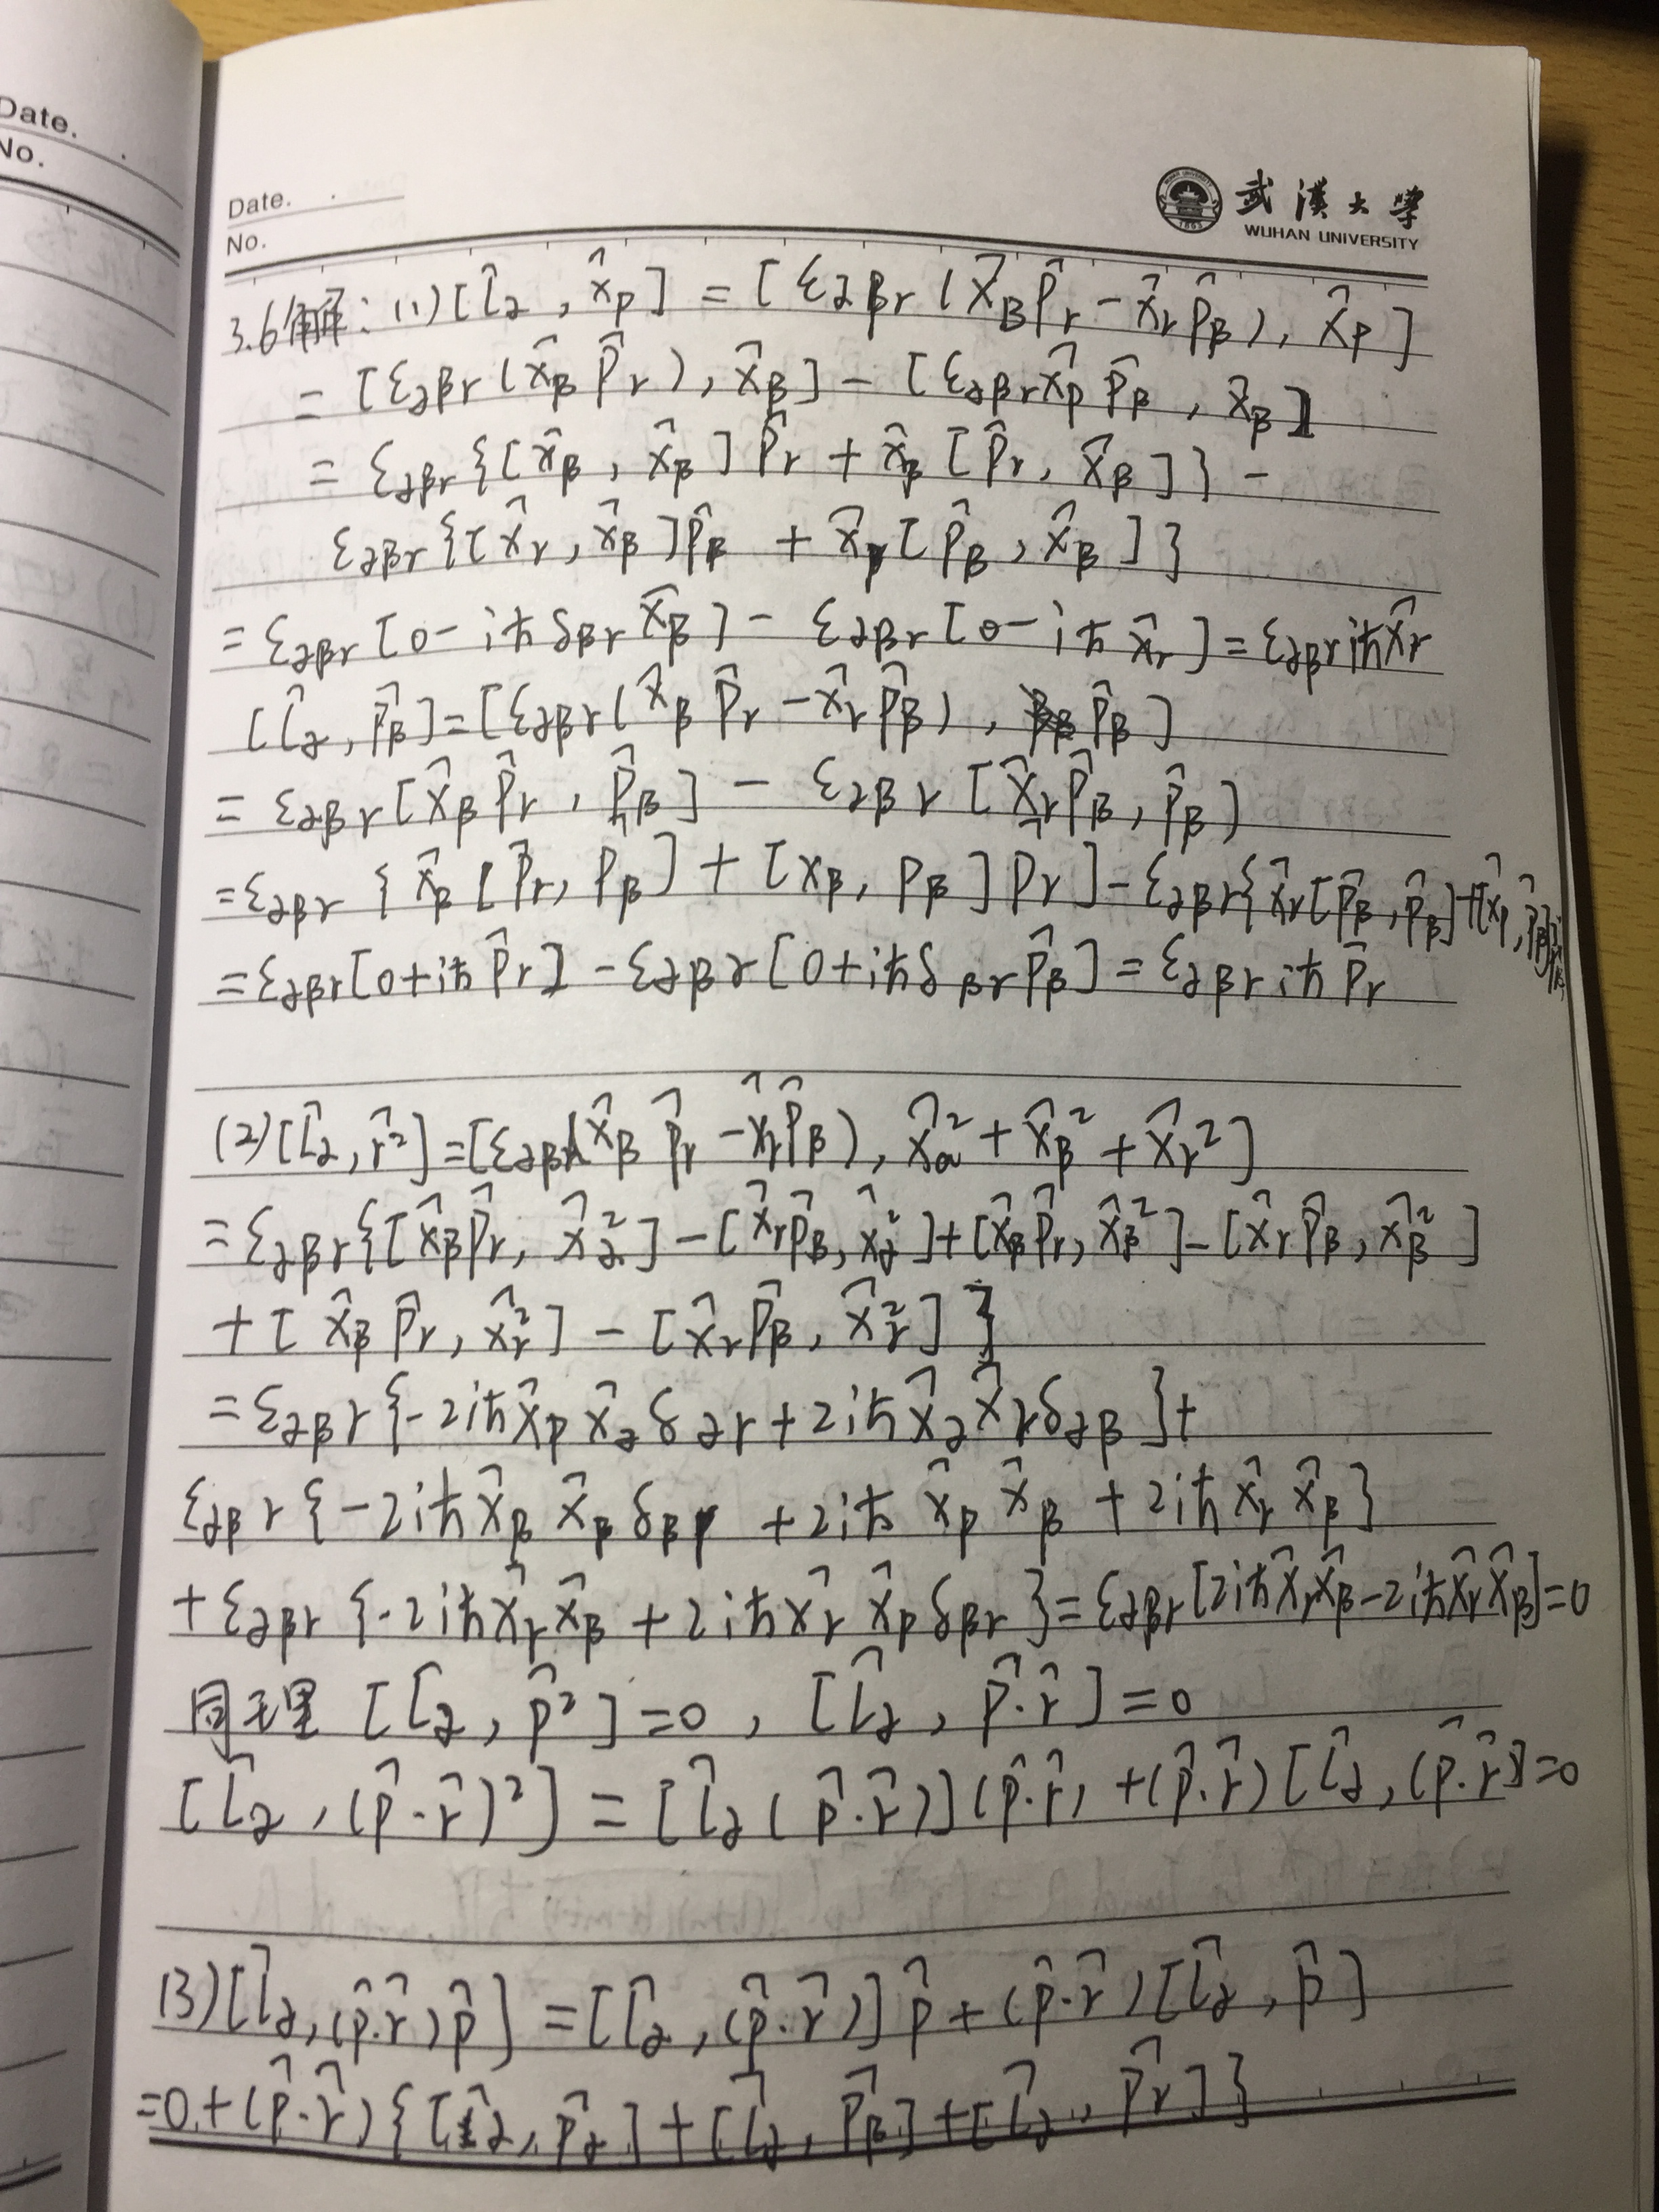 Date.
No.
Date.
No.
武漢大學
WUHAN UNIVERSITY
3.6解: (1) [l̂α, x̂β] = [εαβγ(x̂βp̂γ - x̂γp̂β), x̂β]
= [εαβγ(x̂βp̂γ), x̂β] - [εαβγx̂βp̂β, x̂β]
= εαβγ{[x̂β, x̂β]p̂γ + x̂β[p̂γ, x̂β]} -
εαβγ{[x̂γ, x̂β]p̂β + x̂γ[p̂β, x̂β]}
= εαβγ[0 - iħδβγx̂β] - εαβγ[0 - iħx̂γ] = εαβγiħx̂γ
[l̂α, p̂β] = [εαβγ(x̂βp̂γ - x̂γp̂β), p̂β]
= εαβγ[x̂βp̂γ, p̂β] - εαβγ[x̂γp̂β, p̂β)
= εαβγ{x̂β[p̂γ, pβ] + [xβ, pβ]pγ] - εαβγ{x̂γ[p̂β, p̂β] + [x̂β, p̂β]
= εαβγ[0 + iħp̂γ] - εαβγ[0 + iħδβγp̂β] = εαβγiħp̂γ
(2) [l̂α, r̂²] = [εαβγ(x̂βp̂γ - x̂γp̂β), x̂α² + x̂β² + x̂γ²]
= εαβγ{[x̂βp̂γ, x̂α²] - [x̂γp̂β, x̂α²] + [x̂βp̂γ, x̂β²] - [x̂γp̂β, x̂β²]
+ [x̂βp̂γ, x̂γ²] - [x̂γp̂β, x̂γ²]}
= εαβγ{-2iħx̂βx̂αδαγ + 2iħx̂αx̂γδαβ} +
εαβγ{-2iħx̂βx̂βδβγ + 2iħx̂βx̂β + 2iħx̂γx̂β}
+ εαβγ{-2iħx̂γx̂β + 2iħx̂γx̂βδβγ} = εαβγ[2iħx̂γx̂β - 2iħx̂γx̂β] = 0
同理 [l̂α, p̂²] = 0, [l̂α, p̂·r̂] = 0
[l̂α, (p̂·r̂)²] = [l̂α(p̂·r̂)](p̂·r̂) + (p̂·r̂)[l̂α, (p̂·r̂] = 0
(3) [l̂α, (p̂·r̂)p̂] = [l̂α, (p̂·r̂)]p̂ + (p̂·r̂)[l̂α, p̂]
= 0 + (p̂·r̂){[l̂α, p̂α] + [l̂α, p̂β] + [l̂α, p̂γ]}